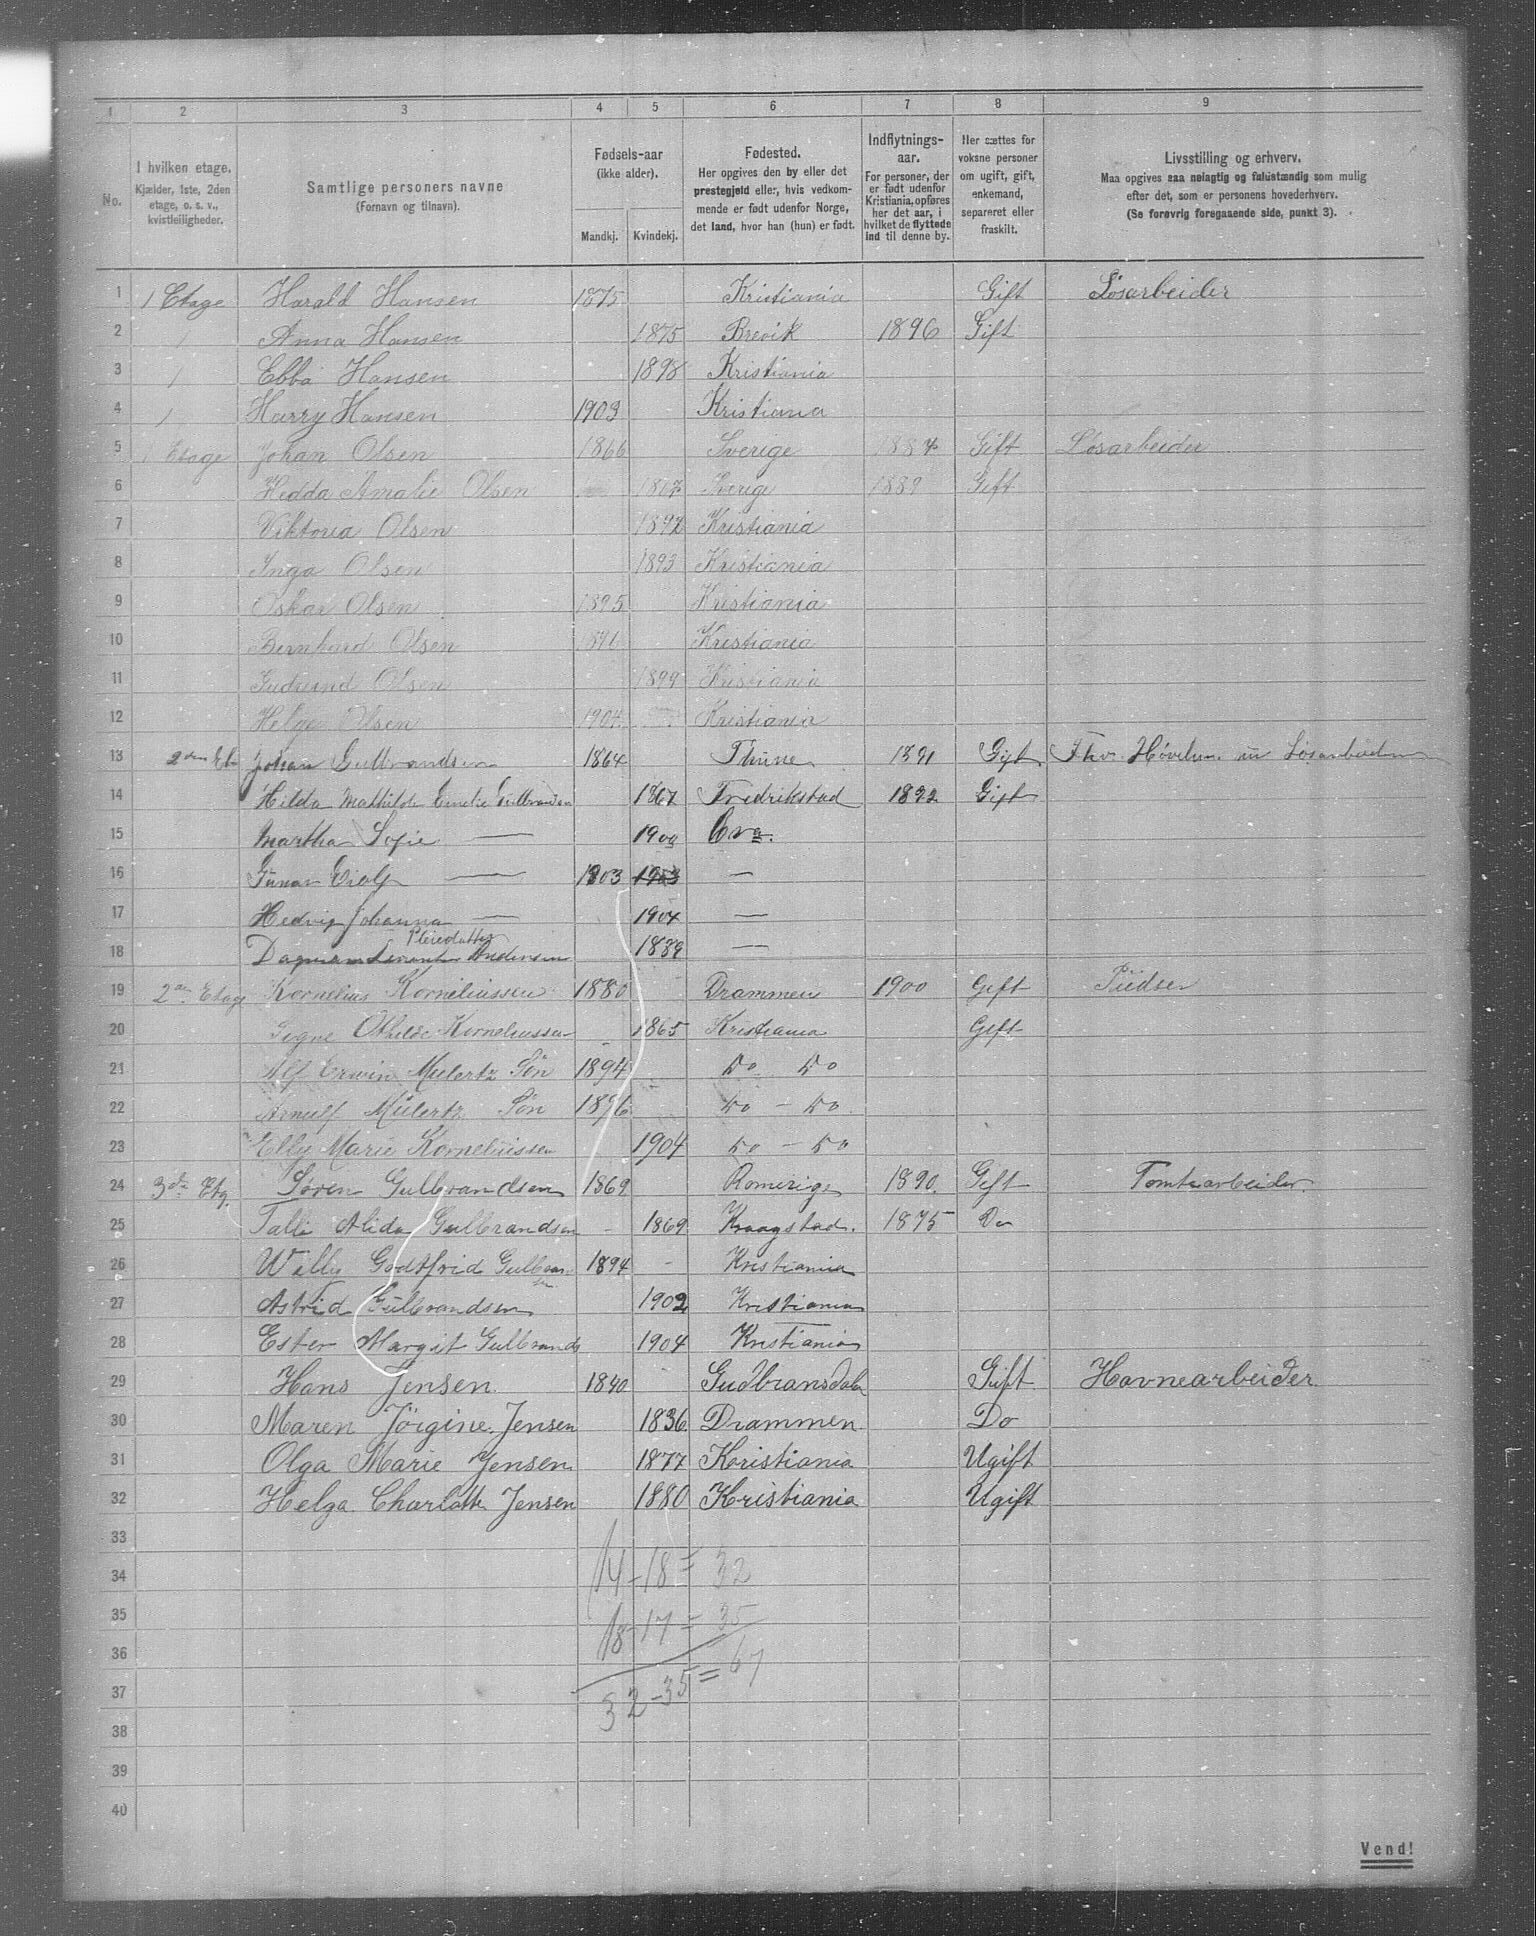 1 2 3 4 5 6 7 8 9
No.
I hvilken etage.
Kjælder, 1ste, 2den
etage, o. s. v.,
kvistleiligheder.
Samtlige personers navne
(Fornavn og tilnavn).
Fødsels-aar
(ikke alder).
Mandkj. Kvindekj.
Fødested.
Her opgives den by eller det
prestegjeld eller, hvis vedkom-
mende er født udenfor Norge,
det land, hvor han (hun) er født.
Indflytnings-
aar.
For personer, der
er født udenfor
Kristiania, opføres
her det aar, i
hvilket de flyttede
ind til denne by.
Her sættes for
voksne personer
om ugift, gift,
enkemand,
separeret eller
fraskilt.
Livsstilling og erhverv.
Maa opgives saa nøiagtig og fuldstændig som mulig
efter det, som er personens hovederhverv.
(Se forøvrig foregaaende side, punkt 3).
1 1 Etage Harald Hansen 1875 Kristiania Gift Løsarbeider
2 1 Anna Hansen 1875 Brevik 1896 Gift
3 1 Ebba Hansen 1898 Kristiania
4 1 Harry Hansen 1903 Kristiana
5 1 Etage Johan Olsen 1866 Sverige 1887 Gift Løsarbeider
6 Hedda Amalie Olsen Sverige 1889 Gift
7 Viktoria Olsen 1892 Kristiania
8 Inga Olsen 1893 Kristiania
9 Oskar Olsen 1895 Kristiania
10 Bernhard Olsen 1896 Kristiania
11 Gudrund Olsen 1899 Kristiania
12 Helge Olsen 1904 Kristiania
13 2den Johan Gulbrandsen 1864 Thune 1891 Gift Løsarbeider
14 Hilda Mathilde Emelie Gulbrandsen 1867 Fredrikstad 1892 Gift
15 Martha Sofie — 1900 Kra.
16 Gunar — 1903 1903 —
17 Hedvig Johanna — 1904 —
18 Pleiedatter Andersen 1889 —
19 2den Etage Kornelius Korneliussen 1880 Drammen 1900 Gift Pudser
20 Signe Othilde Korneliussen 1865 Kristiania Gift
21 Alf Erwin Mulertz Søn 1894 Do Do
22 Arnulf Mulertz Søn 1896 Do – Do
23 Elly Marie Korneliussen 1904 Do – Do
24 3de Etg. Søren Gulbrandsen 1869 Romerige 1890. Gift Tomtearbeider.
25 Alida Gulbrandsen - 1869 Kraagstad. 1875 Do
26 Willy Godtfrid Gulbransen 1894 - Kristiania
27 Astrid Gulbrandsen 1902 Kristiania
28 Ester Margit Gulbrands 1904 Kristiania
29 Hans Jensen. 1840 Gudbransdalen Gift Havnearbeider
30 Maren Jørgine. Jensen 1836. Drammen. Do
31 Olga Marie Jensen 1877 Kristiania Ugift
32 Helga Charlotte Jensen 1880 Kristiania Ugift
33
34 14-18 = 32
35 18-17 = 35
36
37 32-35 = 67
38
39
40
Vend!